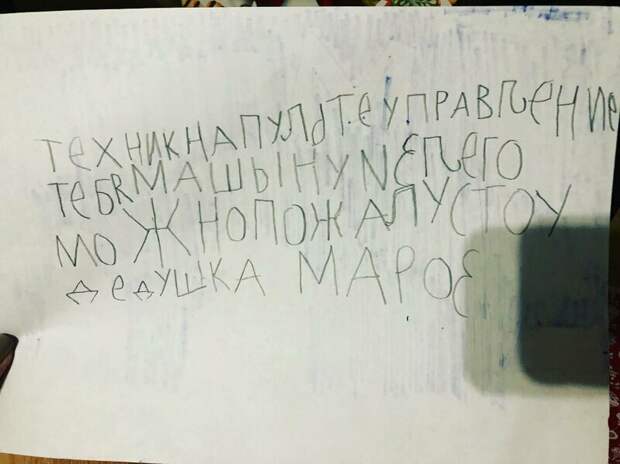 ТЕХНИКНАПУЛЬТЕУПРАВЛЕНИЕ
ТЕБЯМАШЫНУ И ЕПЕГО
МОЖНОПОЖАЛУСТОУ
ДЕДУШКА МАРОЗ